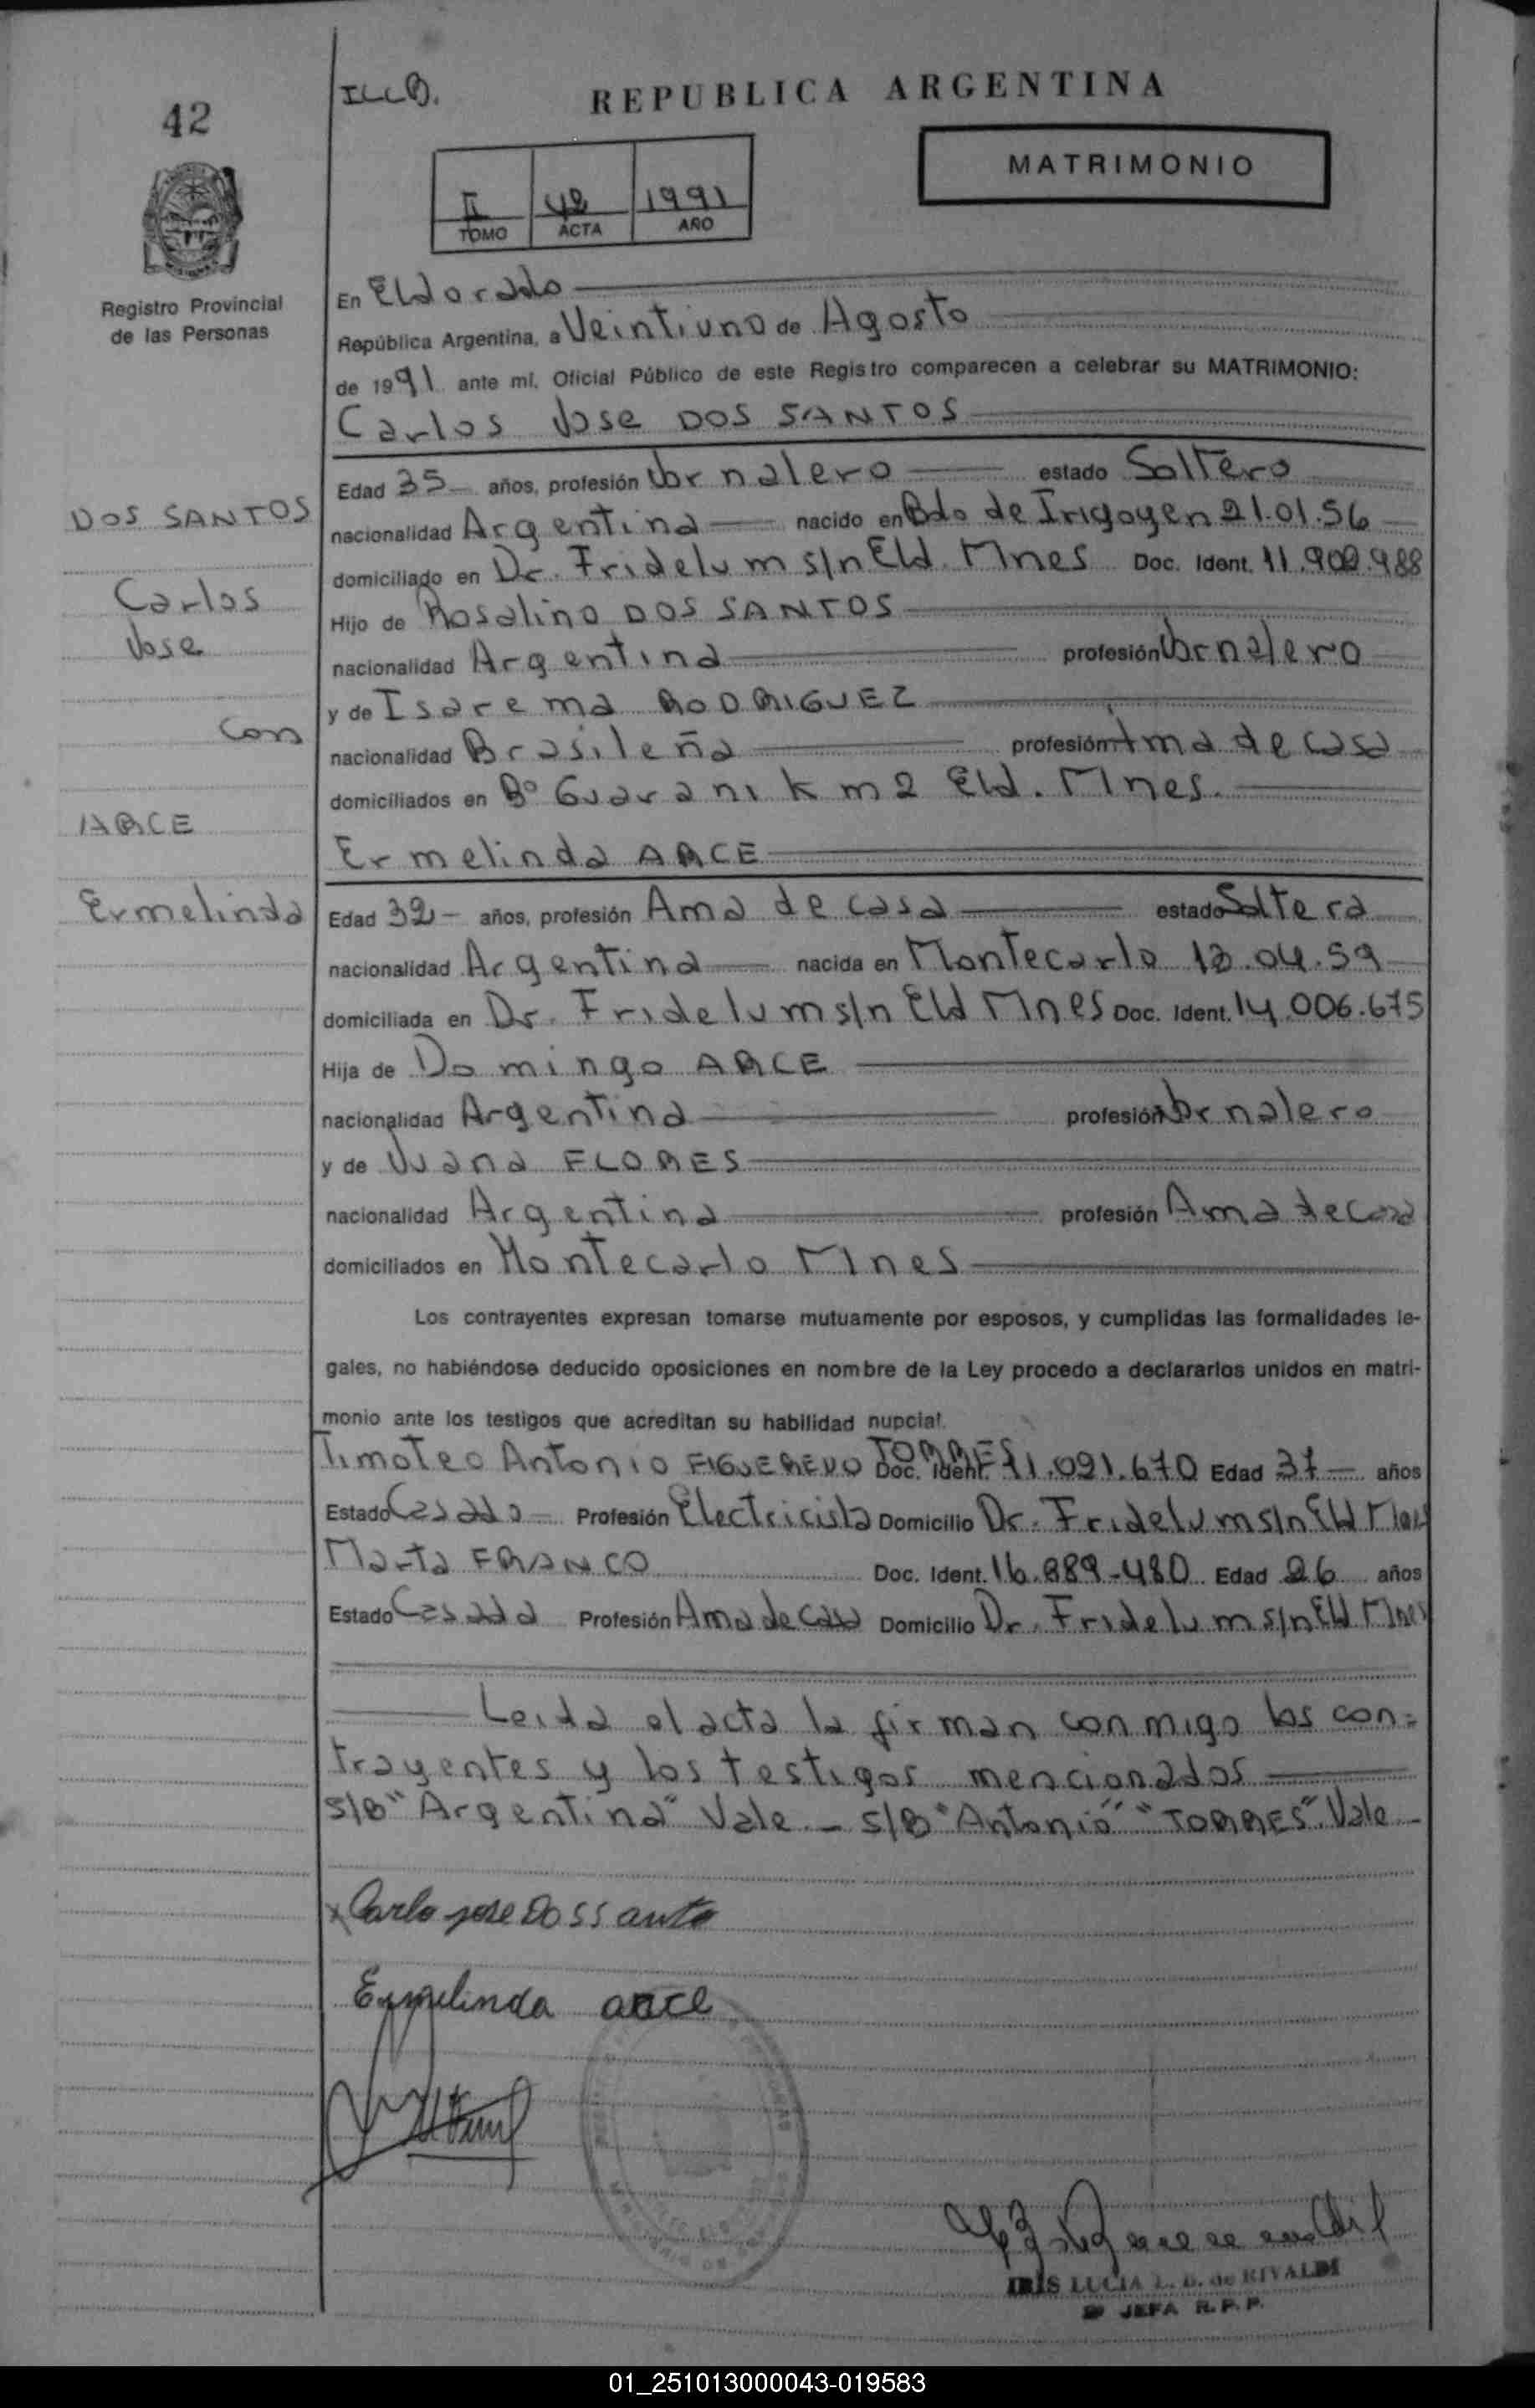 42
ILLB.
REPUBLICA ARGENTINA
MATRIMONIO
II 42 1991
TOMO ACTA AÑO
Registro Provincial
de las Personas
En Eldorado
República Argentina, a Veintiuno de Agosto
de 1991 ante mí, Oficial Público de este Registro comparecen a celebrar su MATRIMONIO:
Carlos Jose DOS SANTOS
Edad 35 años, profesión Jornalero estado Soltero
DOS SANTOS
nacionalidad Argentina nacido en Bdo de Irigoyen 21.01.56
domiciliado en Dr. Fridelum s/n Eld. Mnes Doc. Ident. 11.902.988
Carlos
Hijo de Rosalino DOS SANTOS
Jose
nacionalidad Argentina profesión Jornalero
y de Isarema RODRIGUEZ
Con
nacionalidad Brasileña profesión Ama de casa
domiciliados en Bº Guarani Km 2 Eld. Mnes.
ARCE
Ermelinda ARCE
Ermelinda
Edad 32 años, profesión Ama de casa estado Soltera
nacionalidad Argentina nacida en Montecarlo 12.04.59
domiciliada en Dr. Fridelum s/n Eld Mnes Doc. Ident. 14.006.675
Hija de Domingo ARCE
nacionalidad Argentina profesión Jornalero
y de Juana FLORES
nacionalidad Argentina profesión Ama de casa
domiciliados en Montecarlo Mnes
Los contrayentes expresan tomarse mutuamente por esposos, y cumplidas las formalidades le-
gales, no habiéndose deducido oposiciones en nombre de la Ley procedo a declararlos unidos en matri-
monio ante los testigos que acreditan su habilidad nupcial.
Timoteo Antonio FIGUEREDO TORRES Doc. Ident. 11.091.670 Edad 37 años
Estado Casado Profesión Electricista Domicilio Dr. Fridelum s/n Eld Mnes
Marta FRANCO Doc. Ident. 16.889.480 Edad 26 años
Estado Casada Profesión Ama de casa Domicilio Dr. Fridelum s/n Eld Mnes
Leida el acta la firman conmigo los con=
trayentes y los testigos mencionados
S/B "Argentina" Vale - S/B "Antonio" "TORRES". Vale
x Carlo jose Dos santo
Ermelinda arce
IRIS LUCIA L. B. de RIVALDI
JEFA R.P.P.
01_251013000043-019583